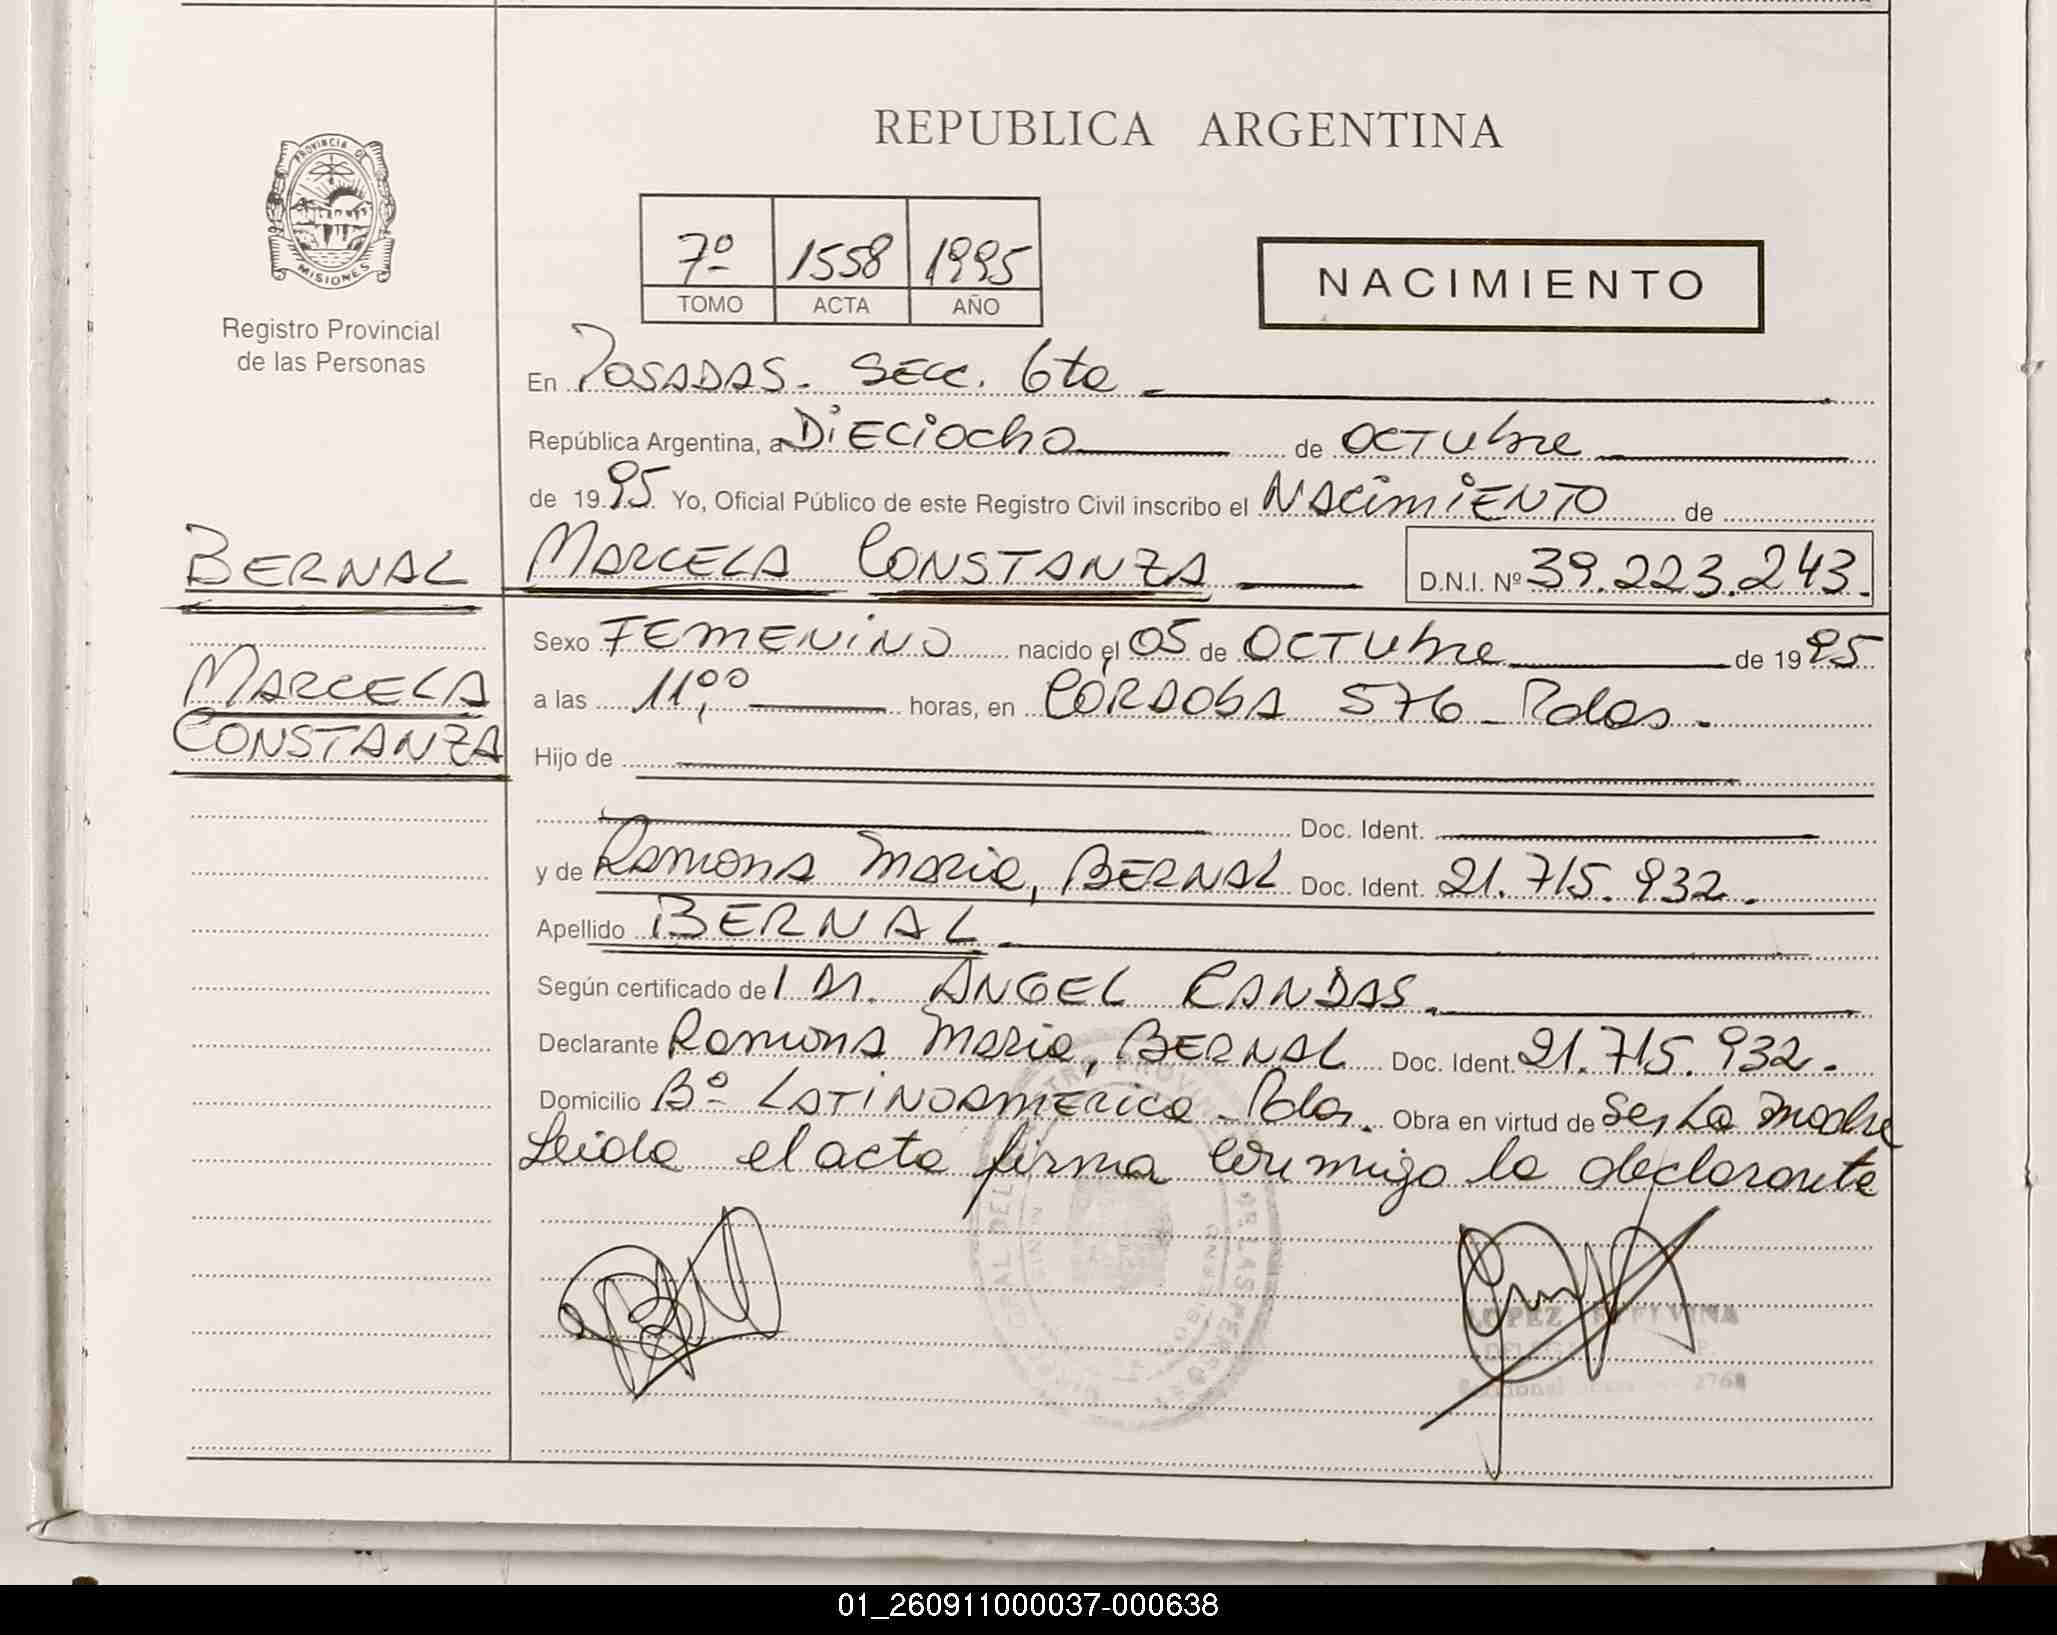 REPUBLICA ARGENTINA
PROVINCIA DE
MISIONES
Registro Provincial
de las Personas
7º 1558 1995
TOMO ACTA AÑO
NACIMIENTO
En POSADAS. SECC. 6ta
República Argentina, a DIECIOCHO de OCTUbre
de 1995 Yo, Oficial Público de este Registro Civil inscribo el NACIMIENTO de
BERNAL MARCELA CONSTANZA D.N.I. Nº 39.223.243.
Sexo FEMENINO nacido el 05 de OCTUbre de 1995
MARCELA
a las 11,00 horas, en CORDOBA 576 - Pdas.
CONSTANZA
Hijo de
Doc. Ident.
y de Ramona Maria, BERNAL Doc. Ident. 21.715.932.
Apellido BERNAL
Según certificado de ANGEL CANDAS.
Declarante Ramona Maria, BERNAL Doc. Ident. 21.715.932.
Domicilio Bº LATINOAMERICA - Pdas. Obra en virtud de Ser La Madre
Leida el acta firma conmigo la declarante
LOPEZ
2768
01_260911000037-000638